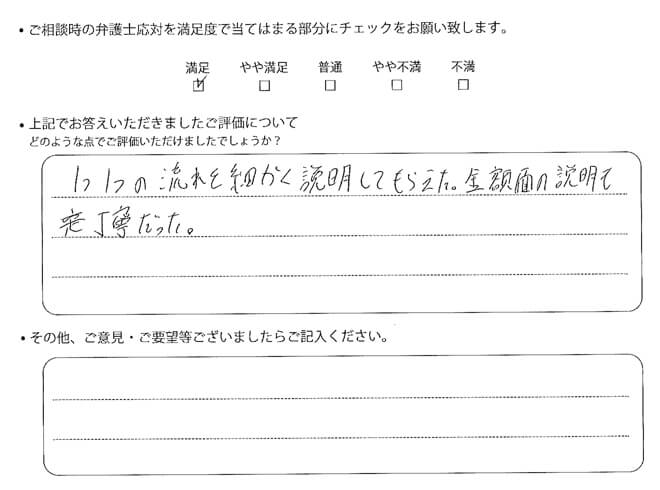 • ご相談時の弁護士応対を満足度で当てはまる部分にチェックをお願い致します。
満足 やや満足 普通 やや不満 不満
☑ □ □ □ □
• 上記でお答えいただきましたご評価について
どのような点でご評価いただけましたでしょうか？
1つ1つの流れを細かく説明してもらえた。金額面の説明も
丁寧だった。
• その他、ご意見・ご要望等ございましたらご記入ください。